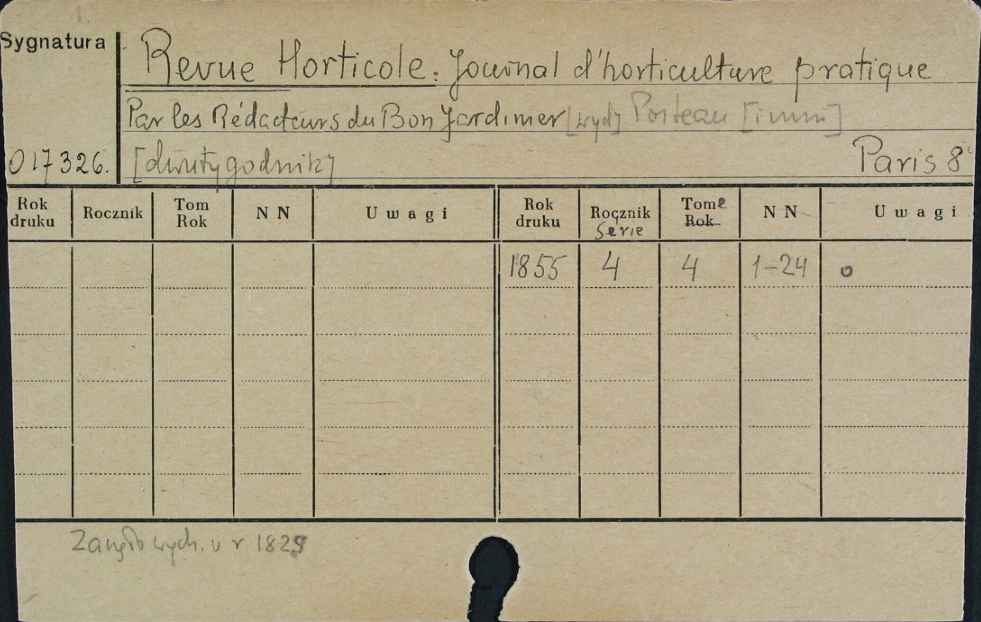 Sygnatura
Revue Horticole. Journal d'horticulture pratique
Par les Rédacteurs du Bon Jardinier [wyd] Poiteau [i inni]
017326. [dwutygodnik] Paris 8°
Rok druku Rocznik Tom Rok NN Uwagi Rok druku Rocznik Serie Tome Rok NN Uwagi
1855 4 4 1-24 o
wych. w r 1829